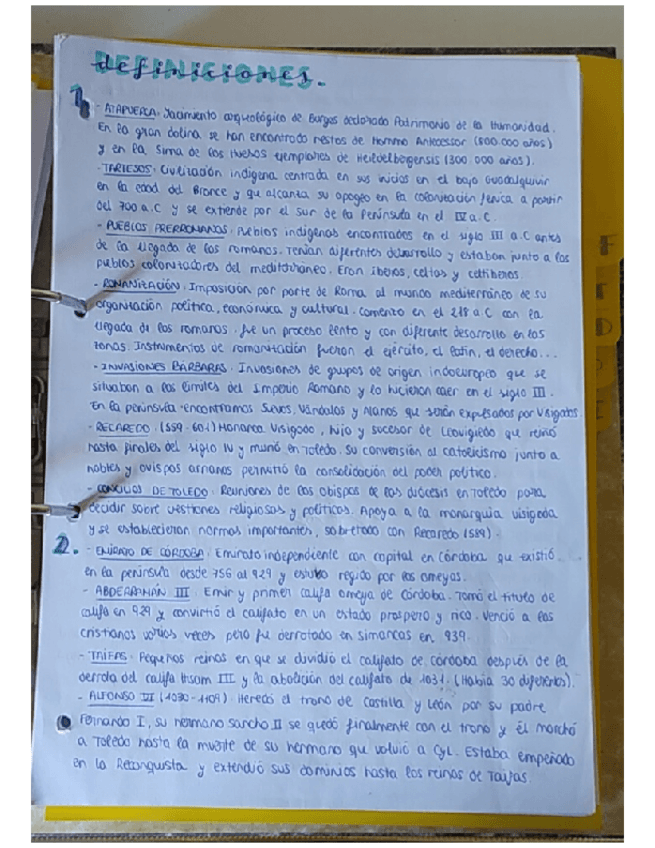 DEFINICIONES
definiciones.
1.
- ATAPUERCA. Yacimiento arqueológico de Burgos declarado Patrimonio de la Humanidad.
En la gran dolina se han encontrado restos de Hommo Antecessor (800 000 años)
y en la Sima de los Huesos ejemplares de Heidelbergensis (300 000 años).
- TARTESOS. Civilización indígena centrada en sus inicios en el bajo Guadalquivir
en la edad del Bronce y que alcanza su apogeo en la colonización fenicia a partir
del 700 a.C y se extiende por el sur de la Península en el IV a.C.
- PUEBLOS PRERROMANOS. Pueblos indígenas encontrados en el siglo III a.C antes
de la llegada de los romanos. Tenían diferentes desarrollo y estaban junto a los
pueblos colonizadores del mediterráneo. Eran iberos, celtas y celtiberos.
- ROMANIZACIÓN. Imposición por parte de Roma al mundo mediterráneo de su
organización política, económica y cultural. comenzo en el 218 a.C con la
llegada de los romanos. fue un proceso lento y con diferente desarrollo en las
zonas. Instrumentos de romanización fueron el ejército, el latín, el derecho...
- INVASIONES BÁRBARAS. Invasiones de grupos de origen indoeuropeo que se
situaban a los límites del Imperio Romano y lo hicieron caer en el siglo III.
En la península encontramos Suevos, Vándalos y Alanos que serán expulsados por Visigodos.
- RECAREDO. (559-601) Monarca Visigodo, hijo y sucesor de Leovigildo que reinó
hasta finales del siglo IV y murió en Toledo. Su conversión al catolicismo junto a
nobles y ovispos arrianos permitió la consolidación del poder político.
- CONCILIOS DE TOLEDO. Reuniones de los obispos de las diócesis en Toledo para
decidir sobre cuestiones religiosas y políticas. Apoya a la monarquía visigoda
y se establecieron normas importantes, sobretodo con Recaredo (589).
2.
- EMIRATO DE CÓRDOBA. Emirato independiente con capital en Córdoba que existió
en la península desde 756 al 929 y estubo regido por los omeyas.
- ABDERRAMÁN III. Emir y primer califa omeya de Córdoba. Tomó el título de
califa en 929 y convirtió el califato en un estado prospero y rico. Venció a los
cristianos varios veces pero fue derrotado en Simancas en 939.
- TAIFAS. Pequeños reinos en que se dividió el califato de córdoba después de la
derrota del califa Hisam III y la abolición del califato de 1031. (Había 30 diferentes).
- ALFONSO VI (1030-1109). Heredó el trono de Castilla y León por su padre
Fernando I, su hermano Sancho II se quedó finalmente con el trono y él marchó
a Toledo hasta la muerte de su hermano que volvió a CyL. Estaba empeñado
en la Reconquista y extendió sus dominios hasta los reinos de Taifas.